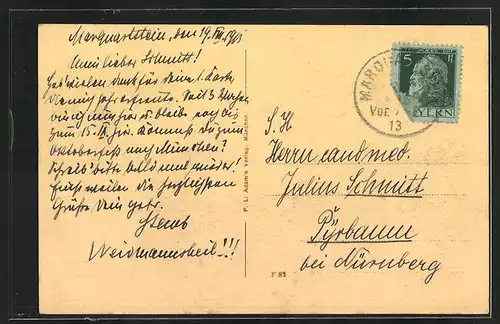 Marquartstein, den 19. VIII. 1913
Mein lieber Schmitt!
vielen Dank für deine l. Karte
Seit 3 Wochen
bin ich nun hier u. bleibe noch bis
zum 15. IX. hier. Kommst du zum
Oktoberfest nach München?
Schreib' bitte bald mal wieder!
Einstweilen die herzlichsten
Grüße dein getr.
Weidmannsheil!!!
P. Li Adam's Verlag, München
F 82
MARQU
Vor.
13
5
YERN
S. H
Herrn cand. med.
Julius Schmitt
Pyrbaum
bei Nürnberg